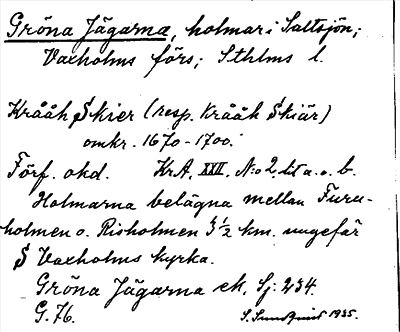 Gröna Jägarna, holmar i Saltsjön;
Vaxholms förs; Sthlms l.
Krååk Skier (resp. Krååk Skiär)
omkr. 1670-1700.
Förf. okd. Kr.A. XXII. No 2 lit a. o. b.
Holmarna belägna mellan Furu-
holmen o. Risholmen 3½ km. ungefär
S Vaxholms kyrka.
Gröna Jägarna ek. Sj: 234.
G. 76. S. Sundquist 1935.